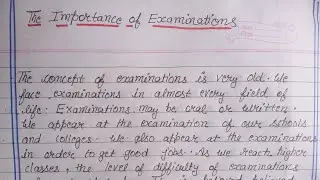 The Importance of Examinations
The concept of examinations is very old. We
face examinations in almost every field of
life. Examinations may be oral or written.
We appear at the examination of our schools
and colleges. We also appear at the examinations
in order to get good jobs. As we reach higher
classes, the level of difficulty of examinations